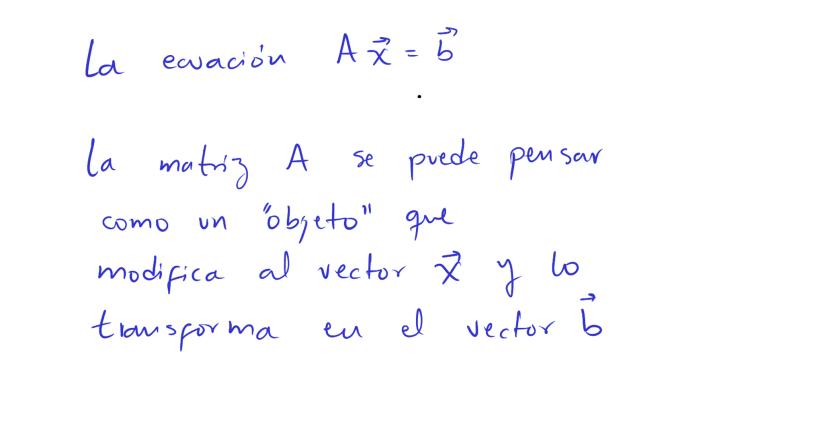 La ecuación A x⃗ = b⃗
La matriz A se puede pensar
como un "objeto" que
modifica al vector x⃗ y lo
transforma en el vector b⃗